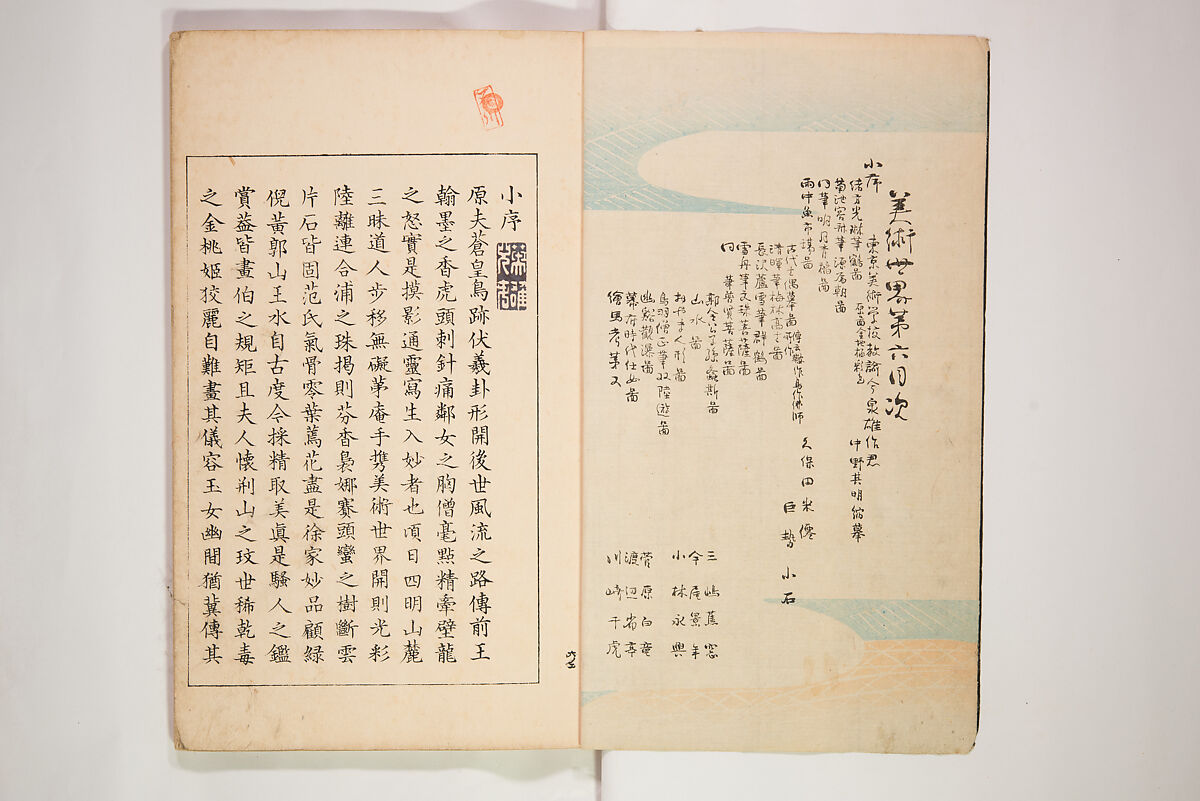 美術世界第六目次
小序 東京美術学校教諭今泉雄作君
緒方光琳筆鶴図 中野其明縮摹
菊池容斎筆源為朝図
同筆明月青楓図
雨中魚市場図 久保田米僊
古代土偶摹図 巨勢小石
清暉筆梅林高士図
長沢蘆雪筆群鶴図
雪舟筆文珠菩薩図
同 筆普賢菩薩図
郭公 三嶋蕉窓
山水図 今尾景年
小林永興
鳥羽僧正筆双陸遊図
幽谿観瀑図 菅原白竜
幕府時代仕女図 渡辺省亭
絵馬考第又 川崎千虎
小序
原夫蒼皇鳥跡伏羲卦形開後世風流之路傳前王
翰墨之香虎頭刺針痛鄰女之胸僧毫點精牽壁龍
之怒實是摸影通靈寫生入妙者也頃日四明山麓
三昧道人步移無礙茅庵手携美術世界開則光彩
陸離連合浦之珠揭則芬香裊娜賽頭蠻之樹斷雲
片石皆固范氏氣骨零葉蔫花盡是徐家妙品顧綠
倪黃郭山王水自古度今採精取美眞是騷人之鑑
賞益皆畫伯之規矩且夫人懷荊山之玟世稀乾毒
之金桃姬狡麗自難畫其儀容玉女幽閒猶冀傳其